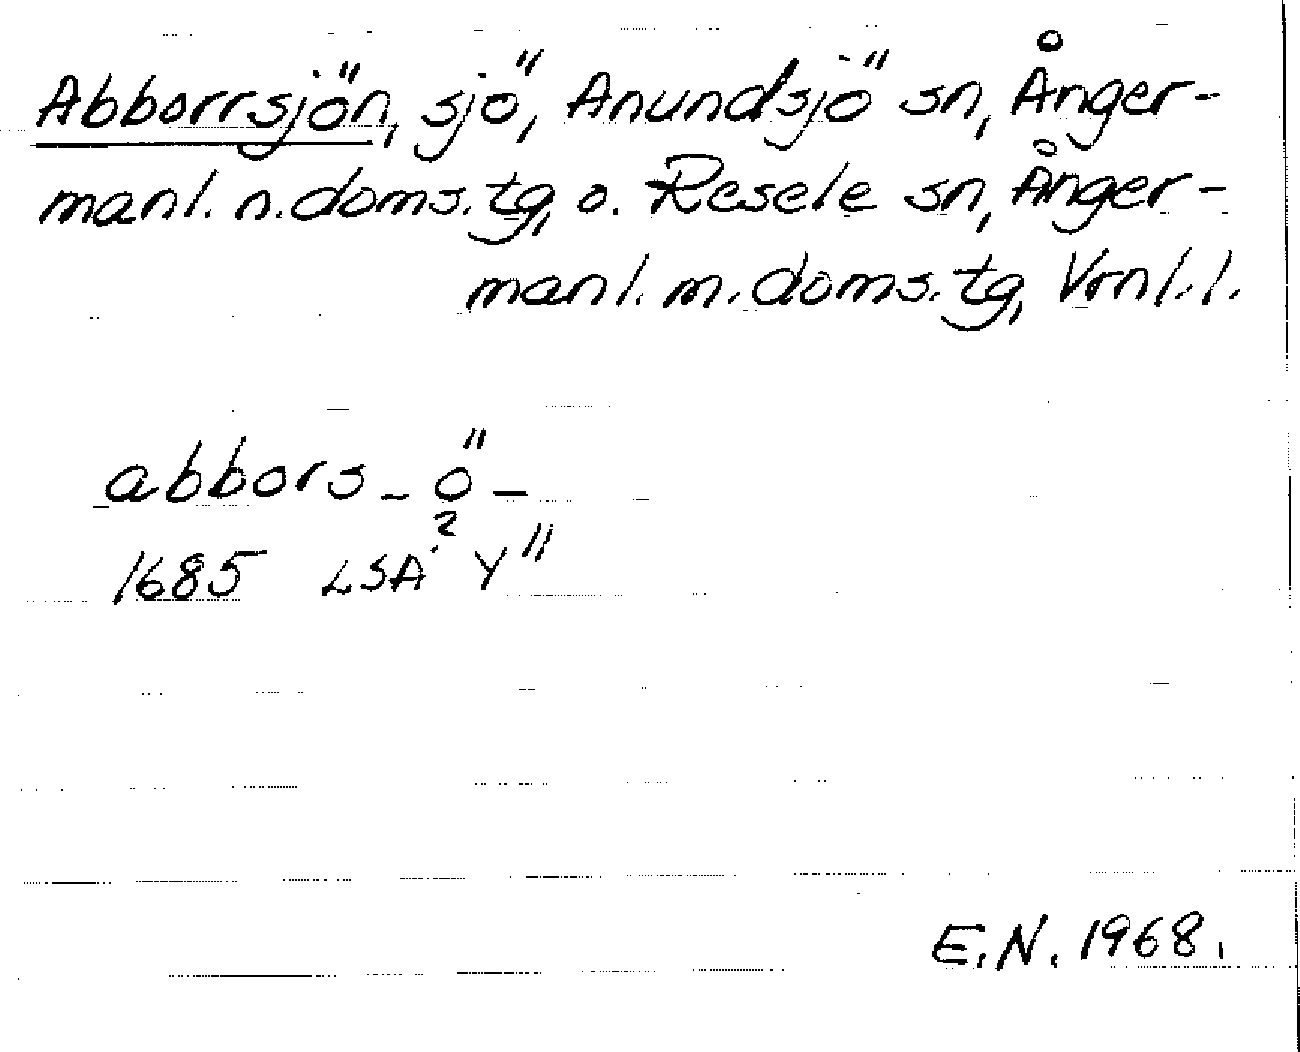 Abborrsjön, sjö, Anundsjö sn, Ånger-
manl. n. doms. tg, o. Resele sn, Ånger-
manl. m. doms. tg, Vrnl. l.
abbors - ö -
1685 LSA Y² 11
E.N. 1968.